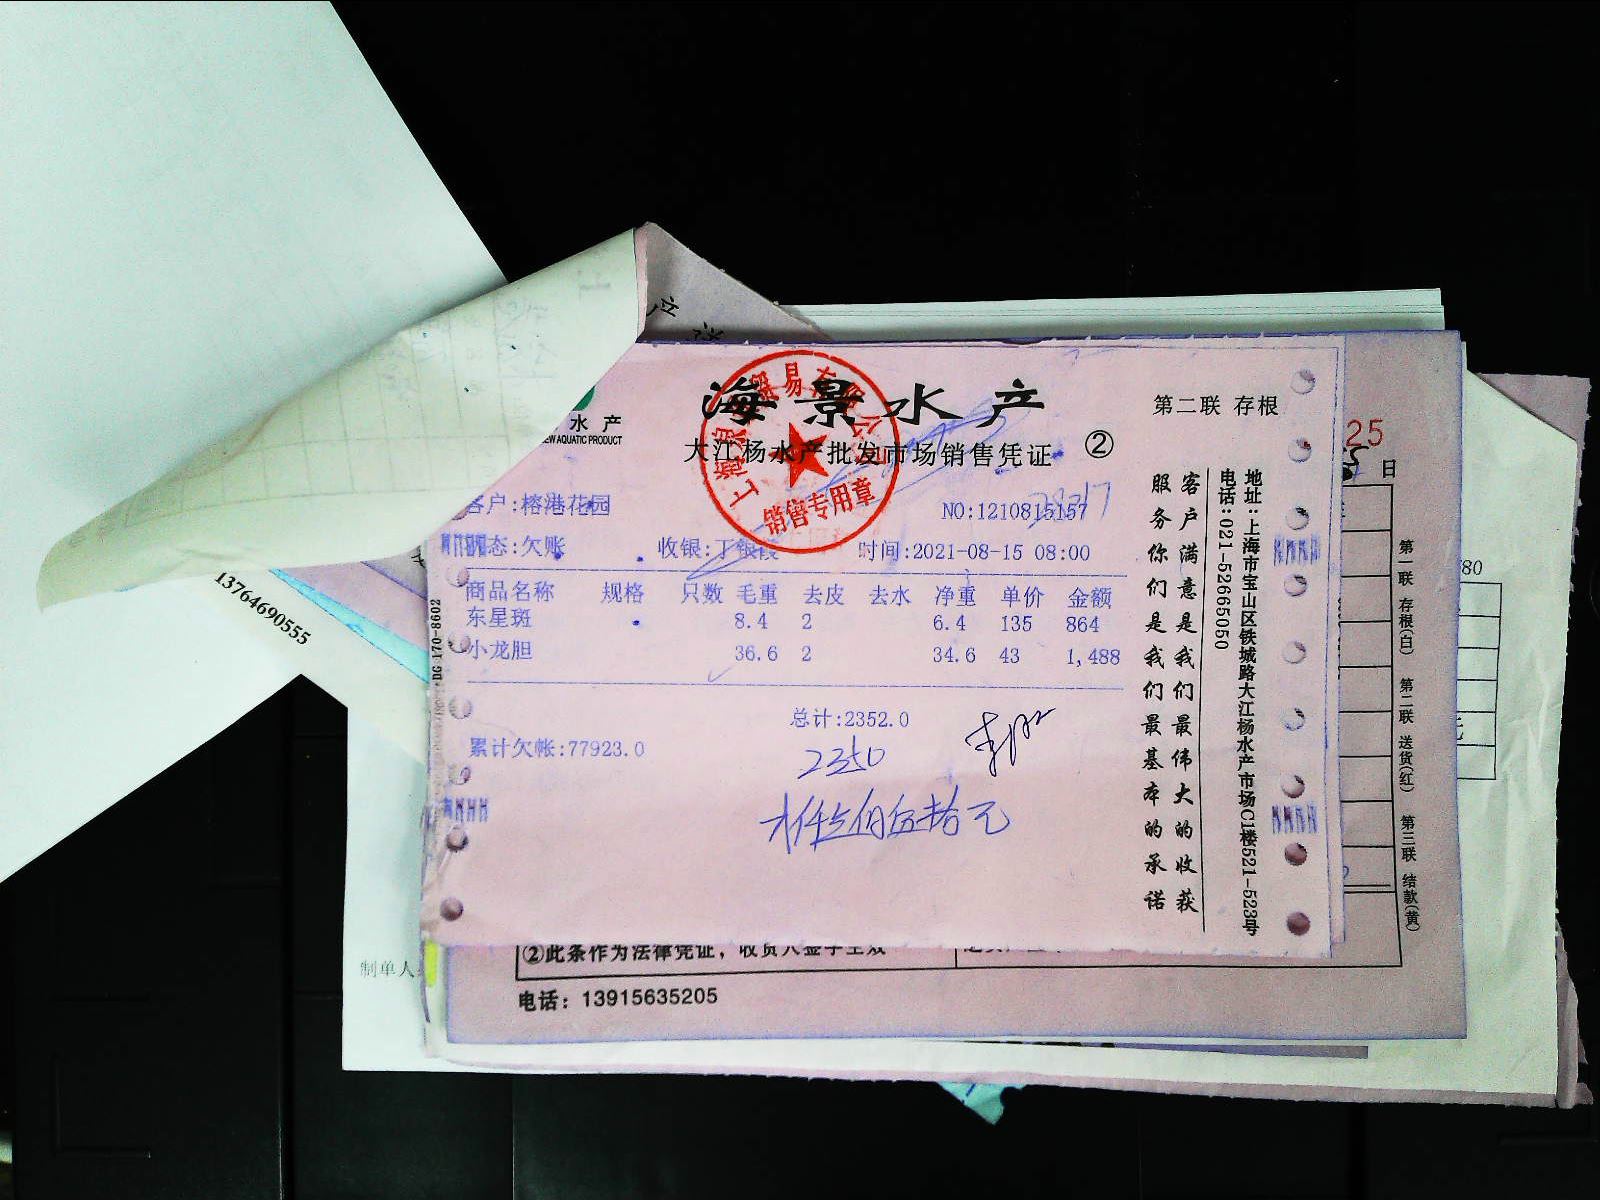 海景水产
第二联 存根
水产
EW AQUATIC PRODUCT
大江杨水产批发市场销售凭证 ②
销售专用章
客户:榕港花园
NO:1210815157
态:欠账
收银:丁银霞
时间:2021-08-15 08:00
商品名称 规格 只数 毛重 去皮 去水 净重 单价 金额
东星斑 8.4 2 6.4 135 864
小龙胆 36.6 2 34.6 43 1,488
总计:2352.0
累计欠帐:77923.0
2350
客户满意是我们最伟大的收获
服务你们是我们最基本的承诺
地址:上海市宝山区铁城路大江杨水产市场C1楼521-523号
电话:021-52665050
DG 170-8602
13764690555
25
日
第一联 存根(白) 第二联 送货(红) 第三联 结款(黄)
780
元
制单人
②此条作为法律凭证，收货人签字生效
电话：13915635205